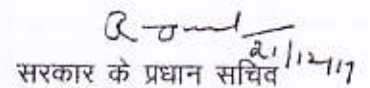 21/12/17
सरकार के प्रधान सचिव